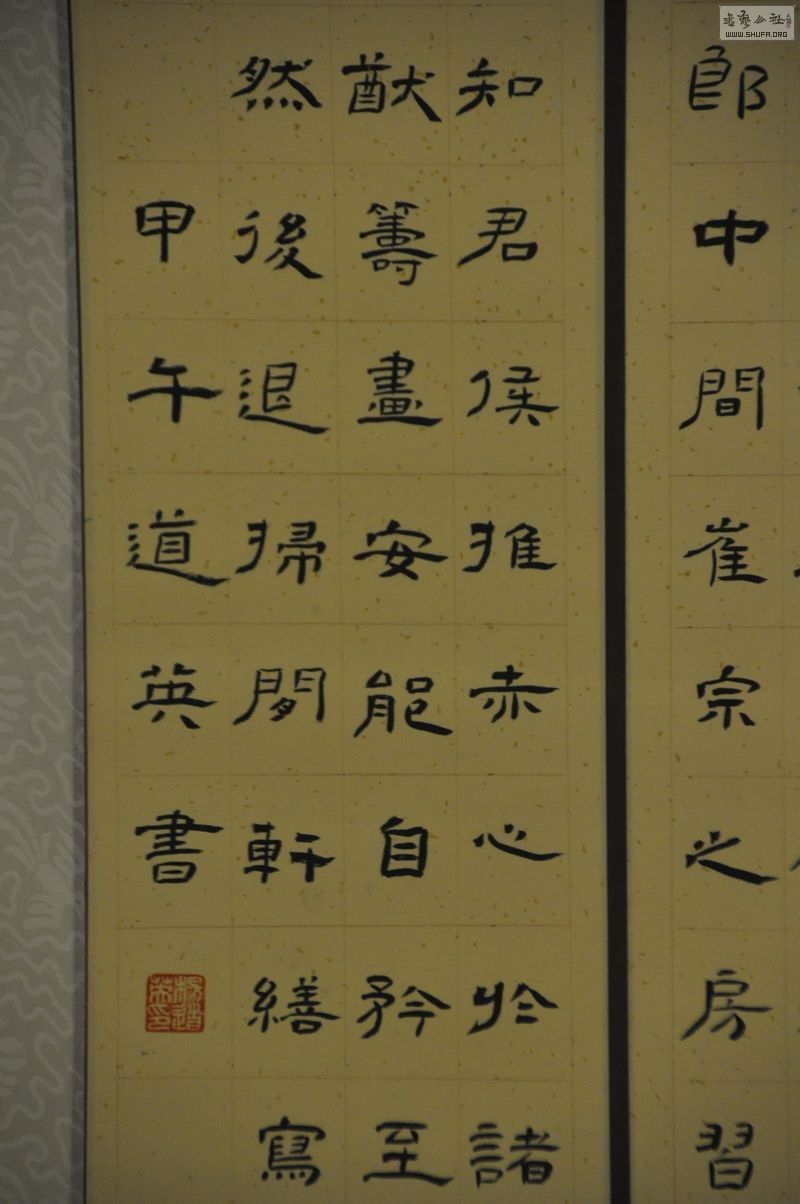 郎中間崔宗之房習
知君侯推赤心於諸
猷籌畫安能自矜至
然後退掃閒軒繕寫
甲午道英書
楊道英印
書藝公社
WWW.SHUFA.ORG